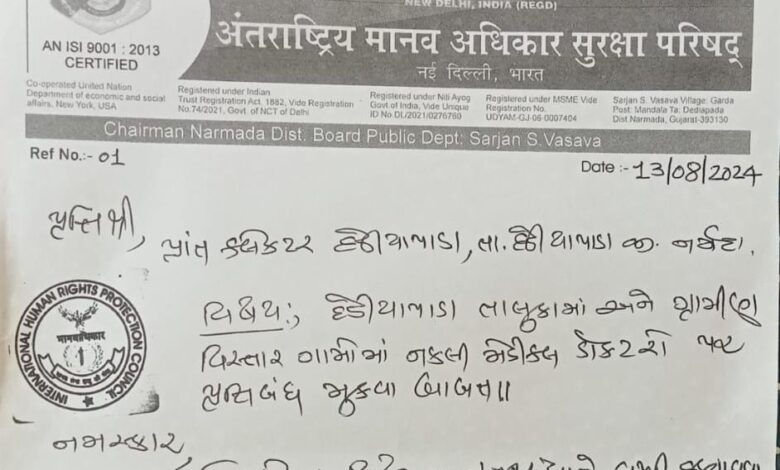 NEW DELHI, INDIA (REGD)
अंतराष्ट्रिय मानव अधिकार सुरक्षा परिषद्
नई दिल्ली, भारत
AN ISI 9001 : 2013
CERTIFIED
Co-operated United Nation
Department of economic and social
affairs, New York, USA
Registered under Indian
Trust Registration Act, 1882, Vide Registration
No.74/2021, Govt. of NCT of Delhi
Registered under Niti Ayog
Govt. of India, Vide Unique
ID No.DL/2021/0276760
Registered under MSME Vide
Registration No.
UDYAM-GJ-06-0007404
Sarjan S. Vasava Village: Garda
Post: Mandala Ta: Dediapada
Dist Narmada, Gujarat-393130
Chairman Narmada Dist. Board Public Dept: Sarjan S.Vasava
Ref No.:- 01
Date :- 13/08/2024
પ્રતિશ્રી,
પ્રાંત કલેક્ટર દેડીયાપાડા, તા. દેડીયાપાડા જી. નર્મદા.
INTERNATIONAL HUMAN RIGHTS PROTECTION COUNCIL
मानवाधिकार
વિષય:, દેડીયાપાડા તાલુકામાં અને ગ્રામીણ
વિસ્તાર ગામોમાં નકલી મેડીકલ ડોકટરો પર
પ્રતિબંધ મુકવા બાબત॥
નમસ્કાર,